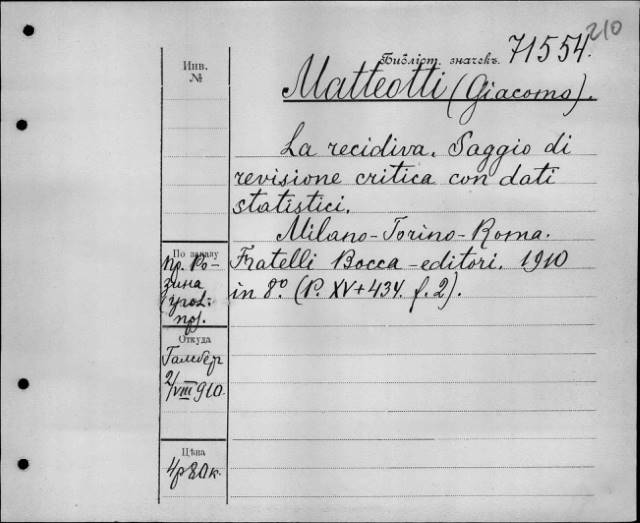 210
Библіот. значекъ. 71554.
Инв.
№
Matteotti (Giacomo).
La recidiva. Saggio di
revisione critica con dati
statistici.
Milano-Torino-Roma.
Fratelli Bocca-editori. 1910
in 8º. (P. XV+434. f. 2).
По заказу
пр. Ро-
зина
Откуда
2/VIII 910.
Цѣна
4р 80к.